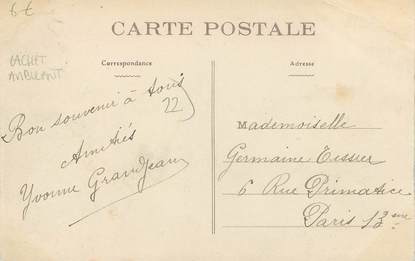 6€
CACHET
AMBULANT
CARTE POSTALE
Correspondance
Adresse
Bon souvenir à tous
22
Amitiés
Yvonne Grandjean
Mademoiselle
Germaine Tissier
6 Rue Primatice
Paris 13eme